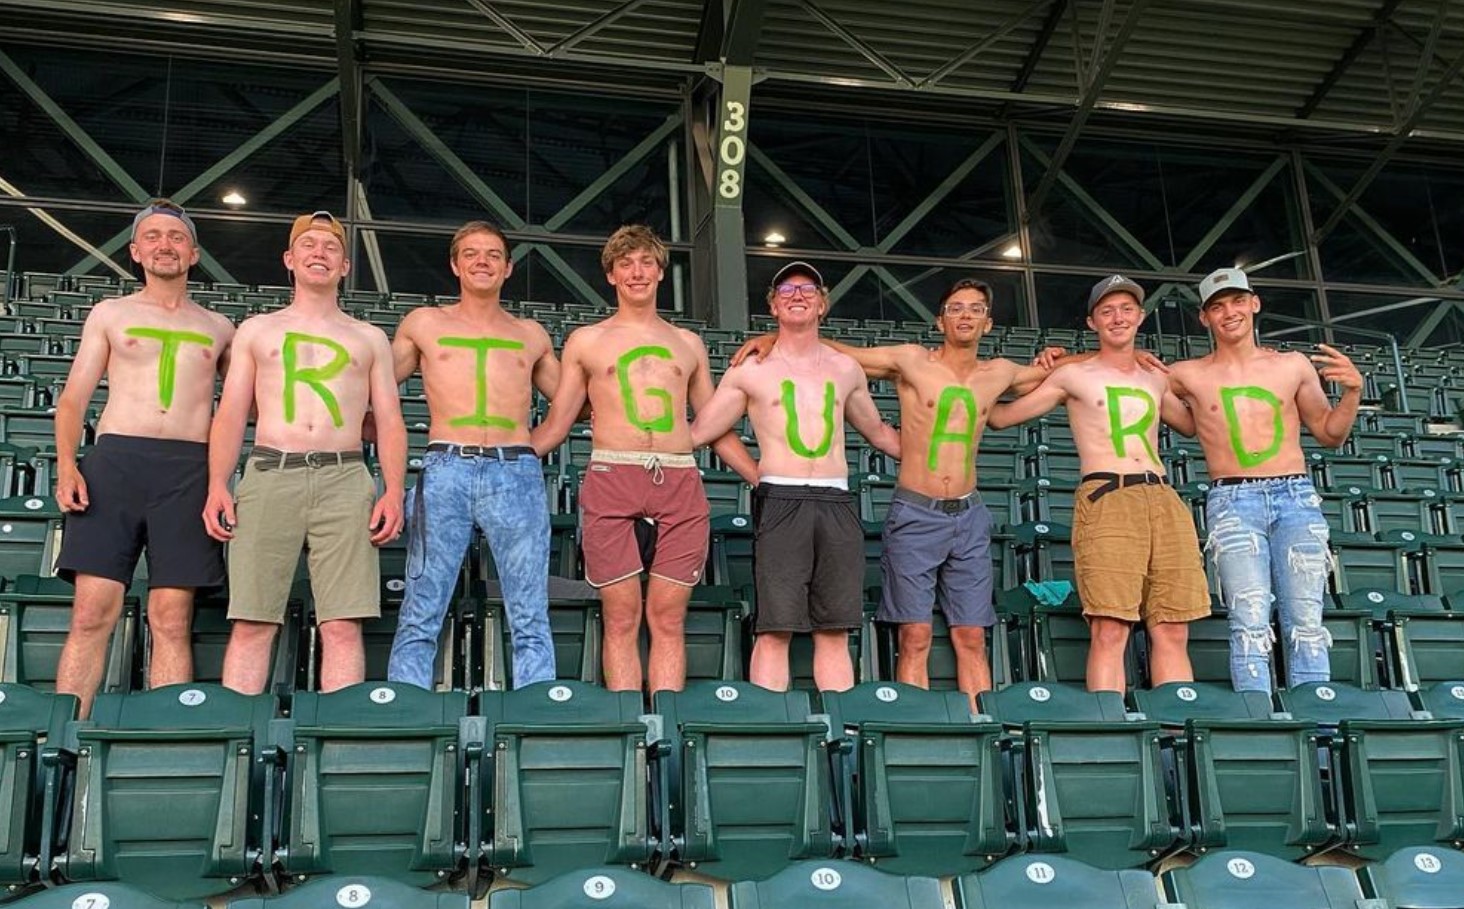 308
TRIGUARD
7 8 9 10 11 12 13 14
7 8 9 10 11 12 13